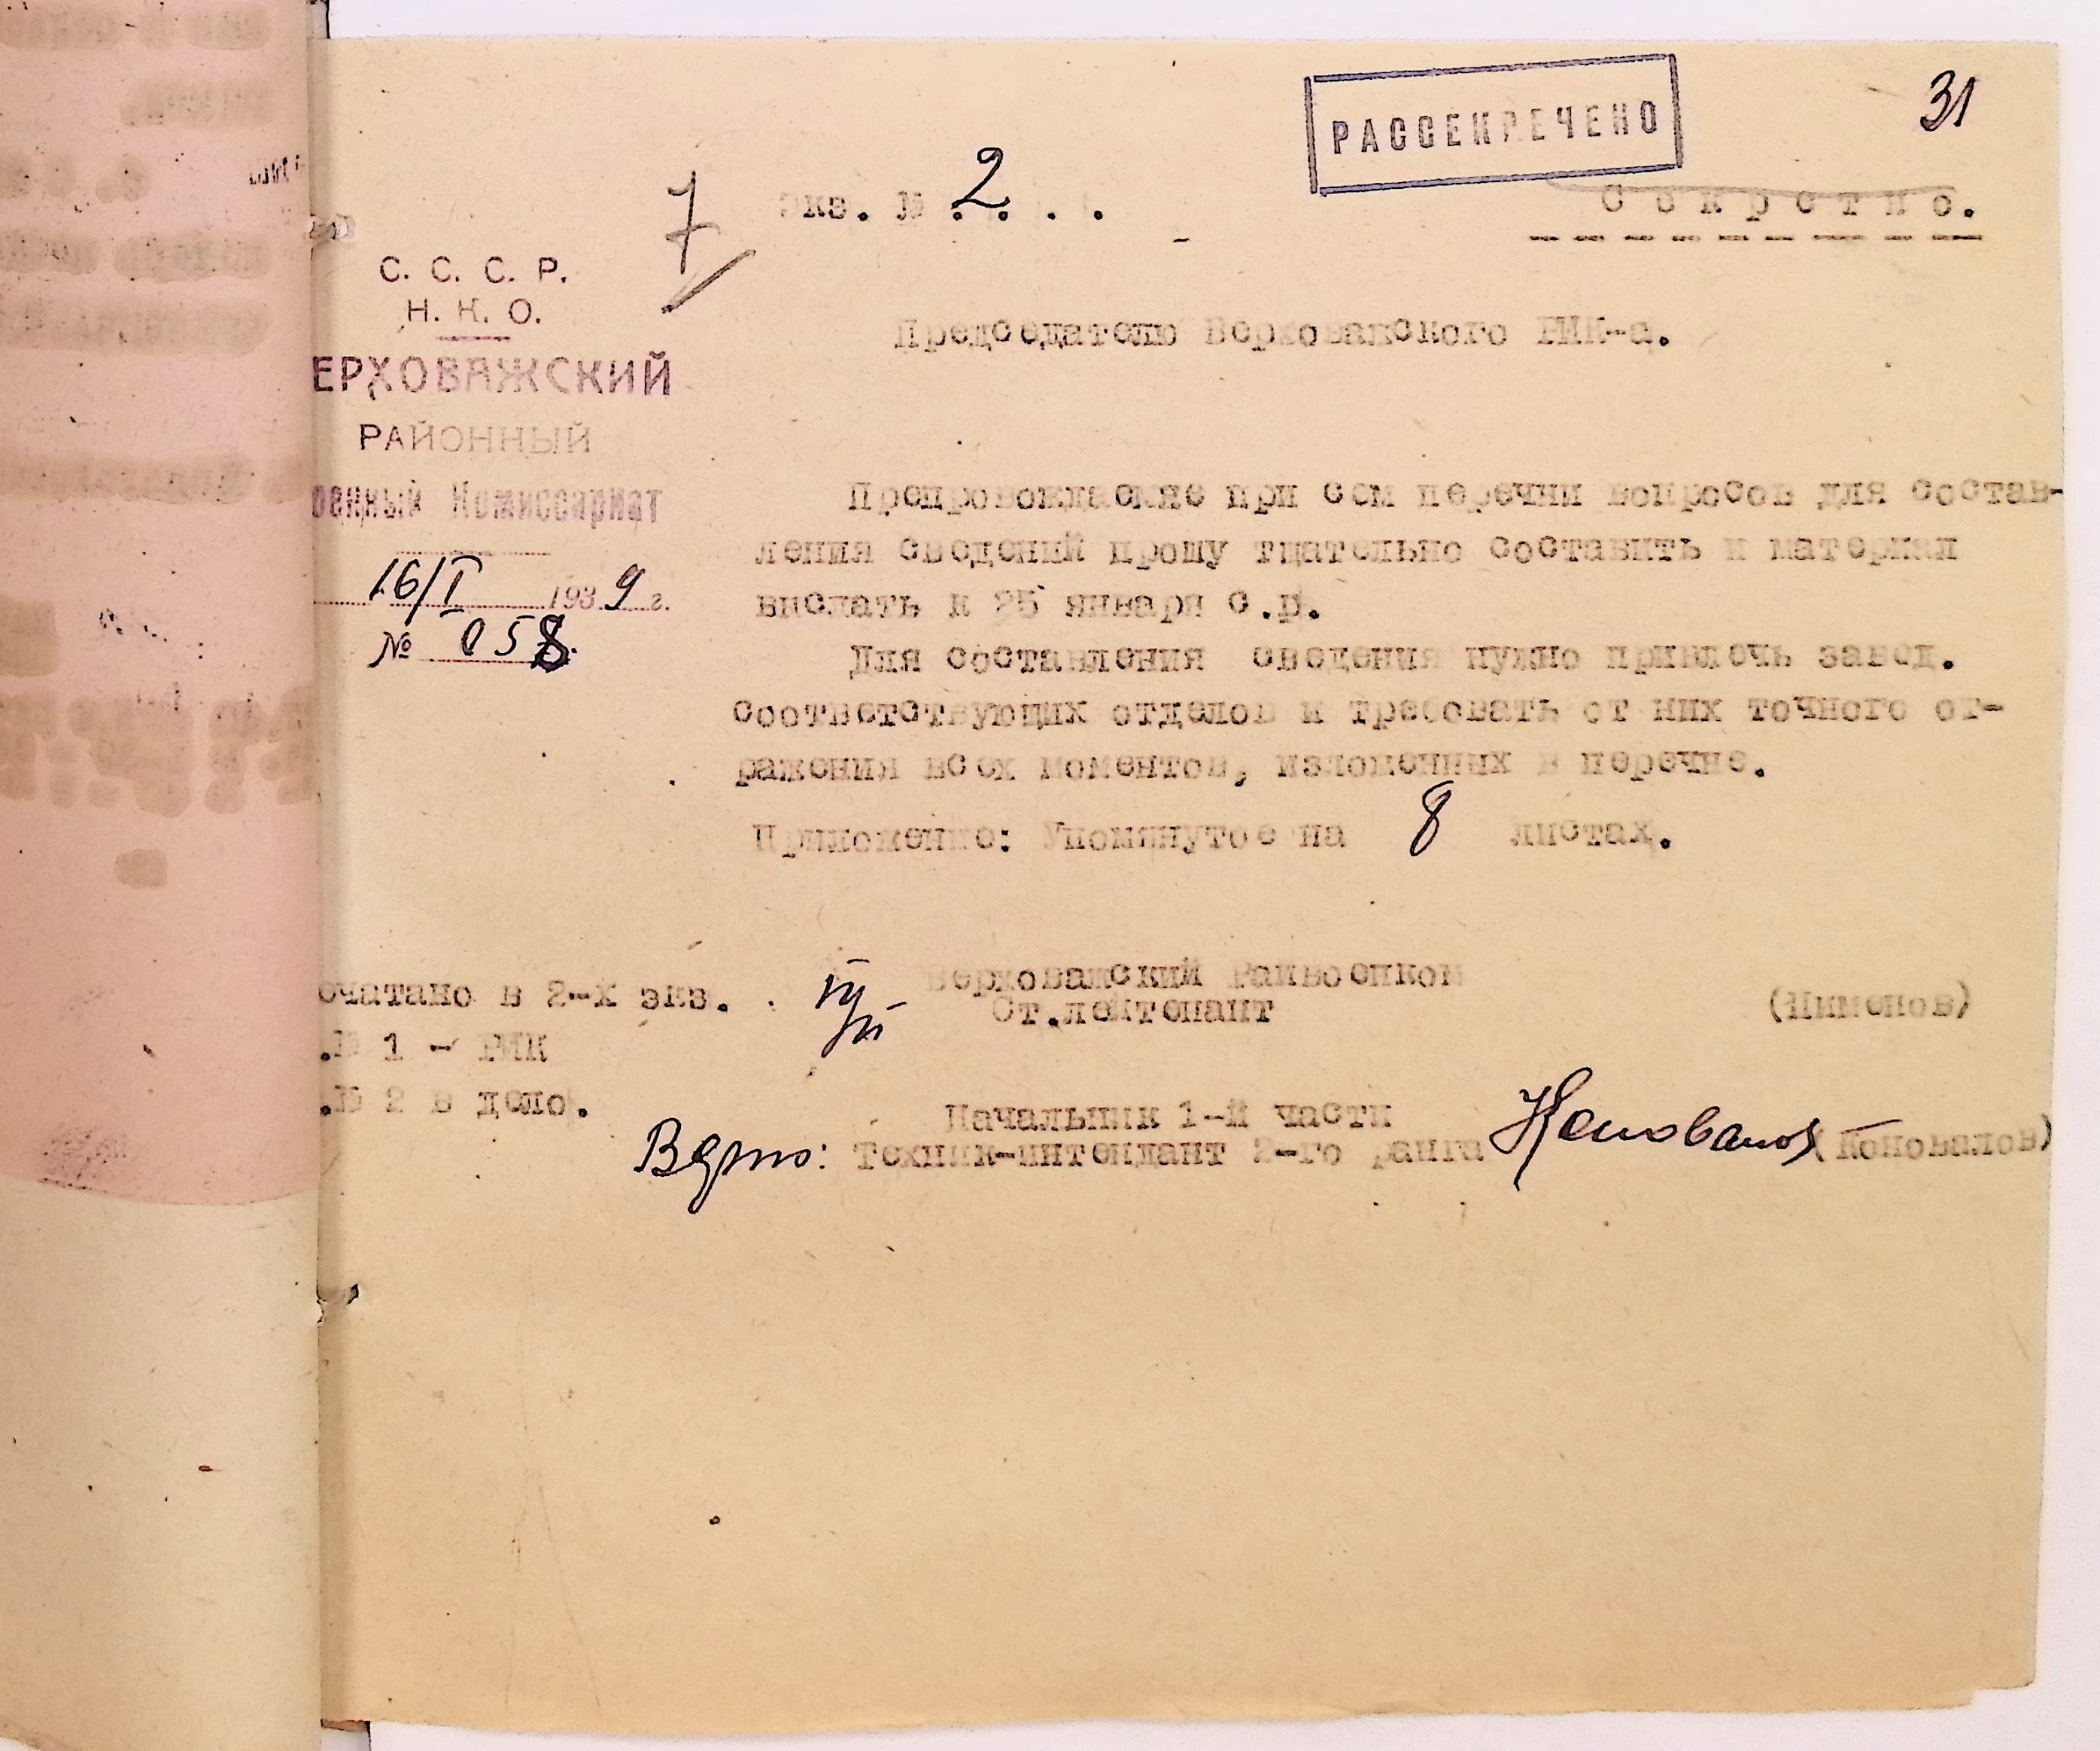 РАССЕКРЕЧЕНО
31
7
Экз. № 2 . .
Секретно.
С. С. С. Р.
Н. К. О.
ЕРХОВАЖСКИЙ
РАЙОННЫЙ
оенный Комиссариат
16/I 1939 г.
№ 058
Председателю Верховажского РИК-а.
Препровождаемые при сем перечни вопросов для состав-
ления сведений прошу тщательно составить и материал
выслать к 25 января с.г.
Для составления сведения нужно привлечь завед.
соответствующих отделов и требовать от них точного от-
ражения всех моментов, изложенных в перечне.
Приложение: Упомянутое на 8 листах.
ечатано в 2-х экз.
.№ 1 - РИК
.№ 2 в дело.
Верховажский Райвоенком
Ст.лейтенант
Начальник 1-й части
Верно: Техник-интендант 2-го ранга Коновалов (Коновалов)